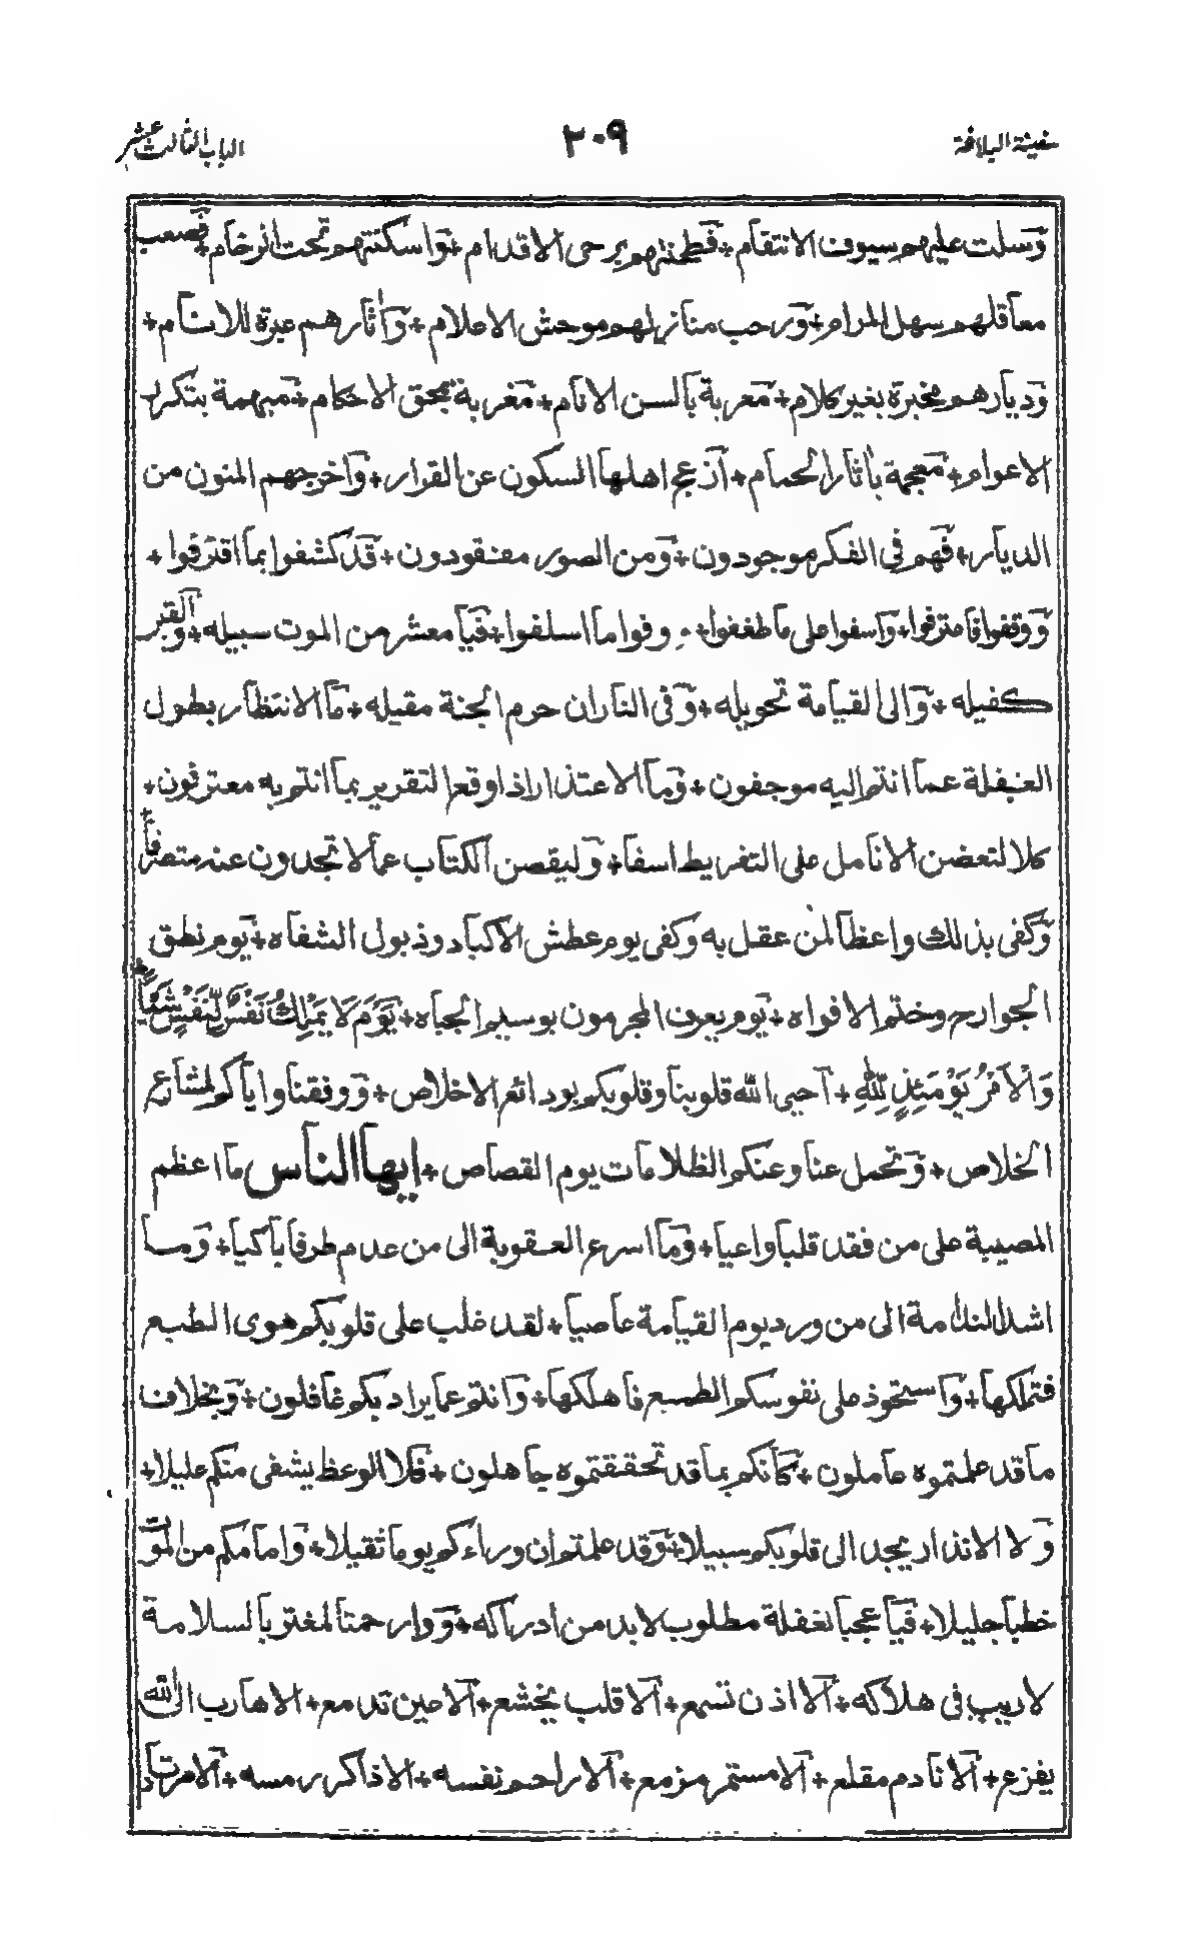 سفينة البلاغة
٢٠٩
الباب الثالث عشر
وسلت عليهم سيوف الانتقام + فطحنتهم برحى الاقدام + واسكنتهم تحت الرخام + فصعب
معاقلهم سهل المرام + ورحب منازلهم موحش الاعلام + واثارهم عبرة للانام +
وديارهم مخبرة بغير كلام + معربة بالسن الانام + مغربة بمحق الاحكام + مبهمة بتكرار
الاعوام + معجمة باثار الحمام + ازعج اهلها السكون عن القرار + واخرجهم المنون من
الديار + فهم في الفكر موجودون + ومن الصور مفقودون + قد كشفوا بما اقترفوا +
ووقفوا فاعترفوا + واسفوا على ما طففوا + ووفوا ما اسلفوا + فيا معشر من الموت سبيله + والقبر
كفيله + والى القيامة تحويله + وفى النار ان حرم الجنة مقيله + ما الانتظار بطول
الغفلة عما انتم اليه موجفون + وما الاعتذار اذا وقع التقرير بما انتم به معترفون +
كلا لتعضن الانامل على التفريط اسفا + وليقصن الكتاب عما لا تجدون عنه متصرفا +
وكفى بذلك واعظا لمن عقل به وكفى يوم عطش الاكباد وذبول الشفاه + يوم نطق
الجوارح وختم الافواه + يوم يعرف المجرمون بوسيم الجباه + يَوْمَ لَا يَمْلِكُ نَفْسٌ لِّنَفْسٍ شَيْئًا ط
وَالْاَمْرُ يَوْمَئِذٍ لِلّٰهِ + احيى الله قلوبنا وقلوبكم بودائع الاخلاص + ووفقنا واياكم لمشارع
الخلاص + وتحمل عنا وعنكم الظلامات يوم القصاص + ايها الناس ما اعظم
المصيبة على من فقد قلبا واعيا + وما اسرع العقوبة الى من عدم طرفا باكيا + وما
اشد الندامة الى من ورد يوم القيامة عاصيا + لقد غلب على قلوبكم هوى الطبع
فتملكها + واستحوذ على نفوسكم الطمع فاهلكها + وانتم عما يراد بكم غافلون + وبخلاف
ما قد علمتموه عاملون + كانكم بما قد تحققتموه جاهلون + فلا الوعظ يشفى منكم عليلا +
ولا الانذار يجد الى قلوبكم سبيلا + وقد علمتم ان وراءكم يوما ثقيلا + واما مكم من الموت
خطبا جليلا + فيا عجبا لغفلة مطلوب لابد من ادراكه + ووارحمتا لمغتر بالسلامة
لا ريب فى هلاكه + الا اذن تسمع + الا قلب يخشع + الا عين تدمع + الا هارب الى الله
يفزع + الا نادم مقلع + الا مستمر مزمع + الا راحم نفسه + الا ذاكر رمسه + الا مرتاد